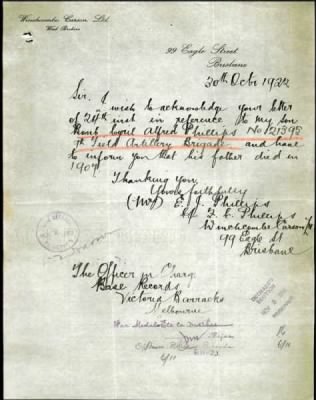 Winchcombe Carson Ltd.
Wool Brokers
99 Eagle Street
Brisbane
30th Octbr 1922
Sir, I wish to acknowledge your letter
of 24th inst in reference to my son
Bomb Cyril Alfred Phillips No 21398
7th Field Artillery Brigade and have
to inform you that his father died in
Thanking you,
Yours faithfully
(Mrs) E. J. Phillips
Winchcombe Carson
99 Eagle St
Brisbane
The Officer in Charge
Base Records
Victoria Barracks
Melbourne
War Medals Etc to
6/11